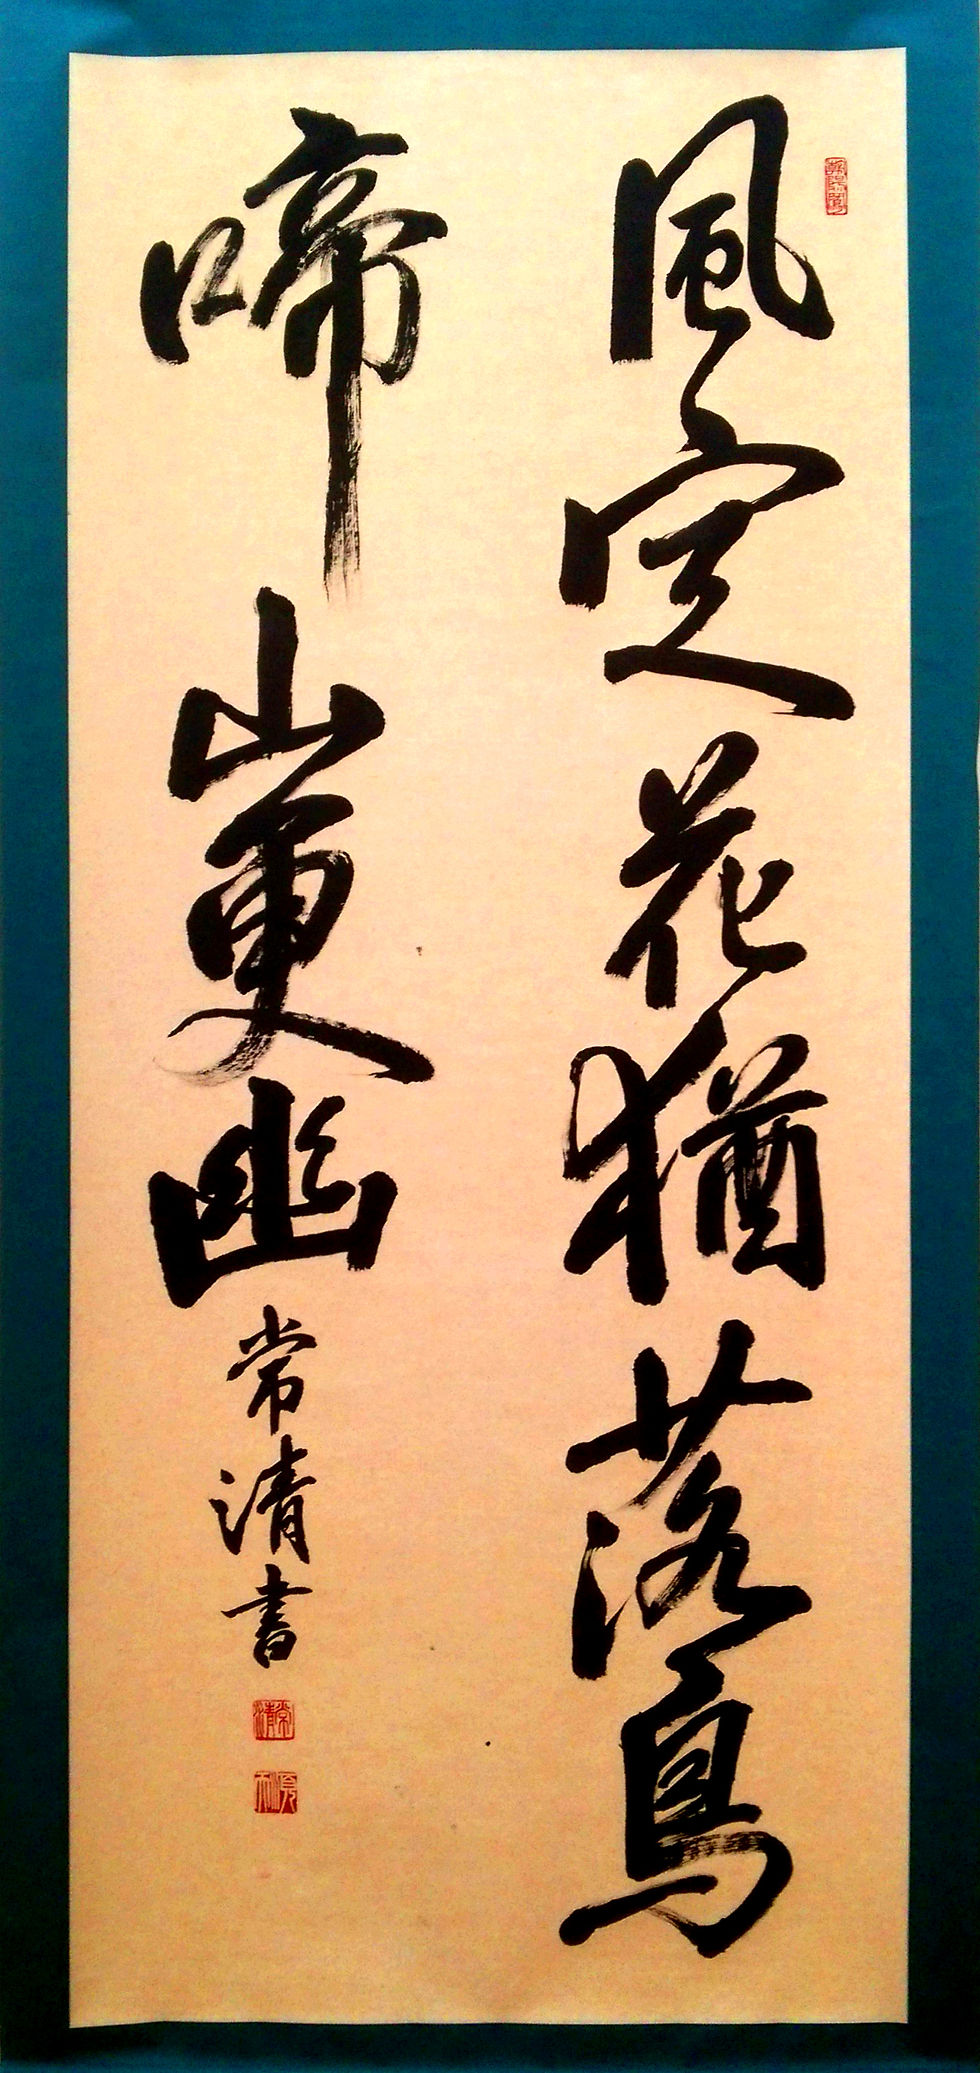 風定花猶落鳥
啼山更幽
常清書
常清